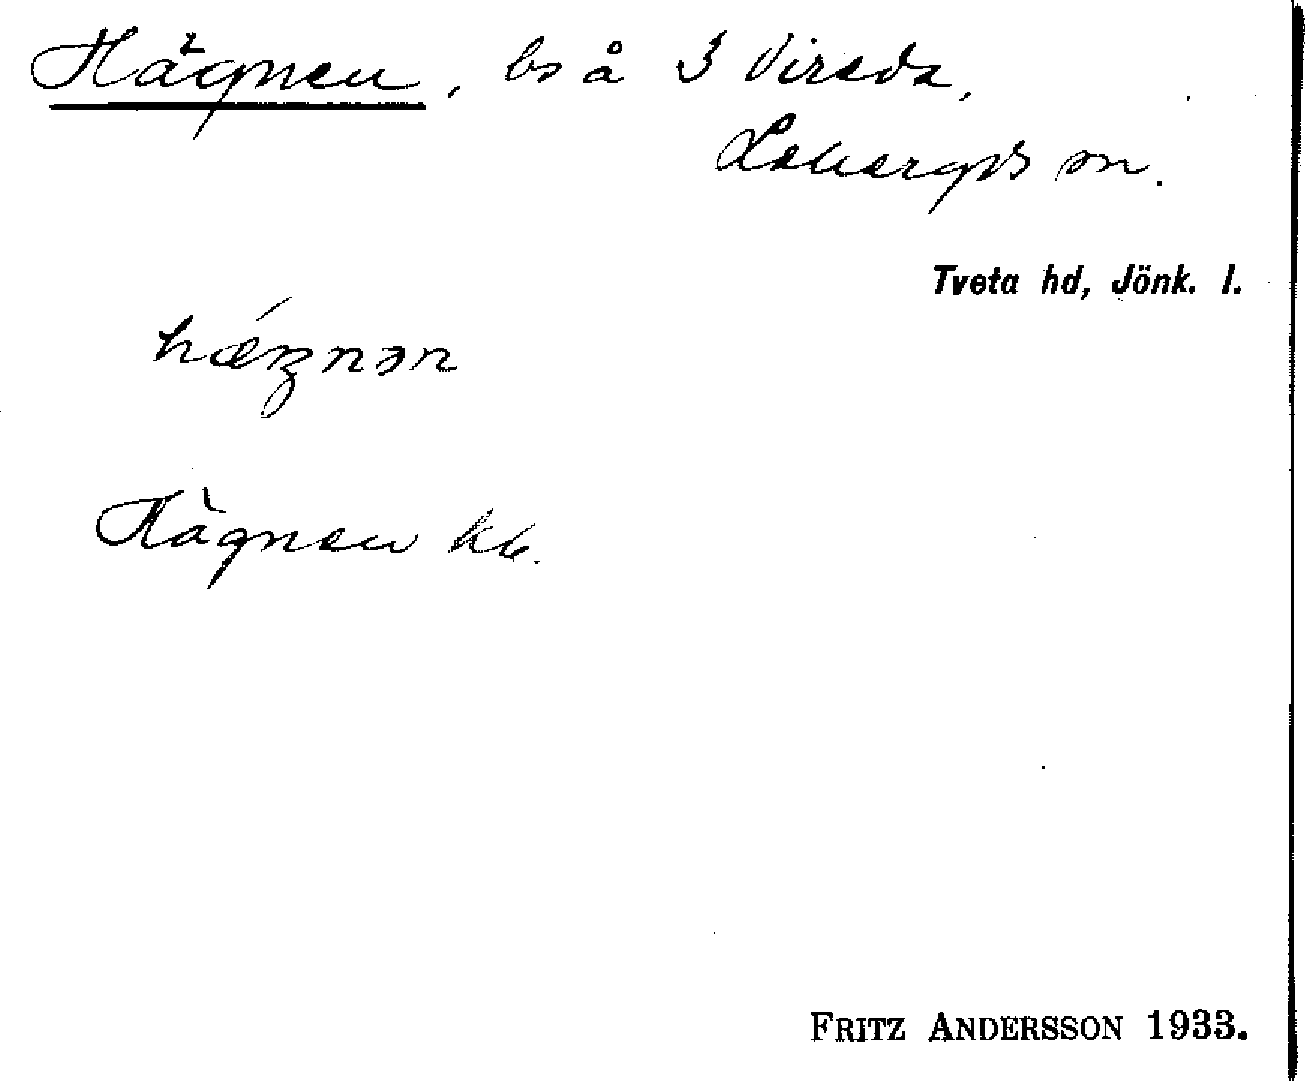 Hägnen, bs å 3 Vireda,
Lekeryds sn.
Tveta hd, Jönk. l.
hǽŋnən
Hägnen kb.
FRITZ ANDERSSON 1933.